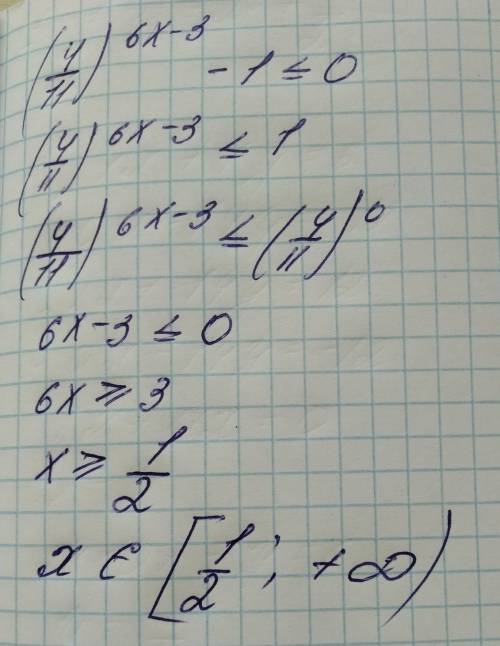 (4/11)^(6x-3) - 1 ≤ 0
(4/11)^(6x-3) ≤ 1
(4/11)^(6x-3) ≤ (4/11)^0
6x-3 ≤ 0
6x ≥ 3
x ≥ 1/2
x ∈ [1/2; +∞)